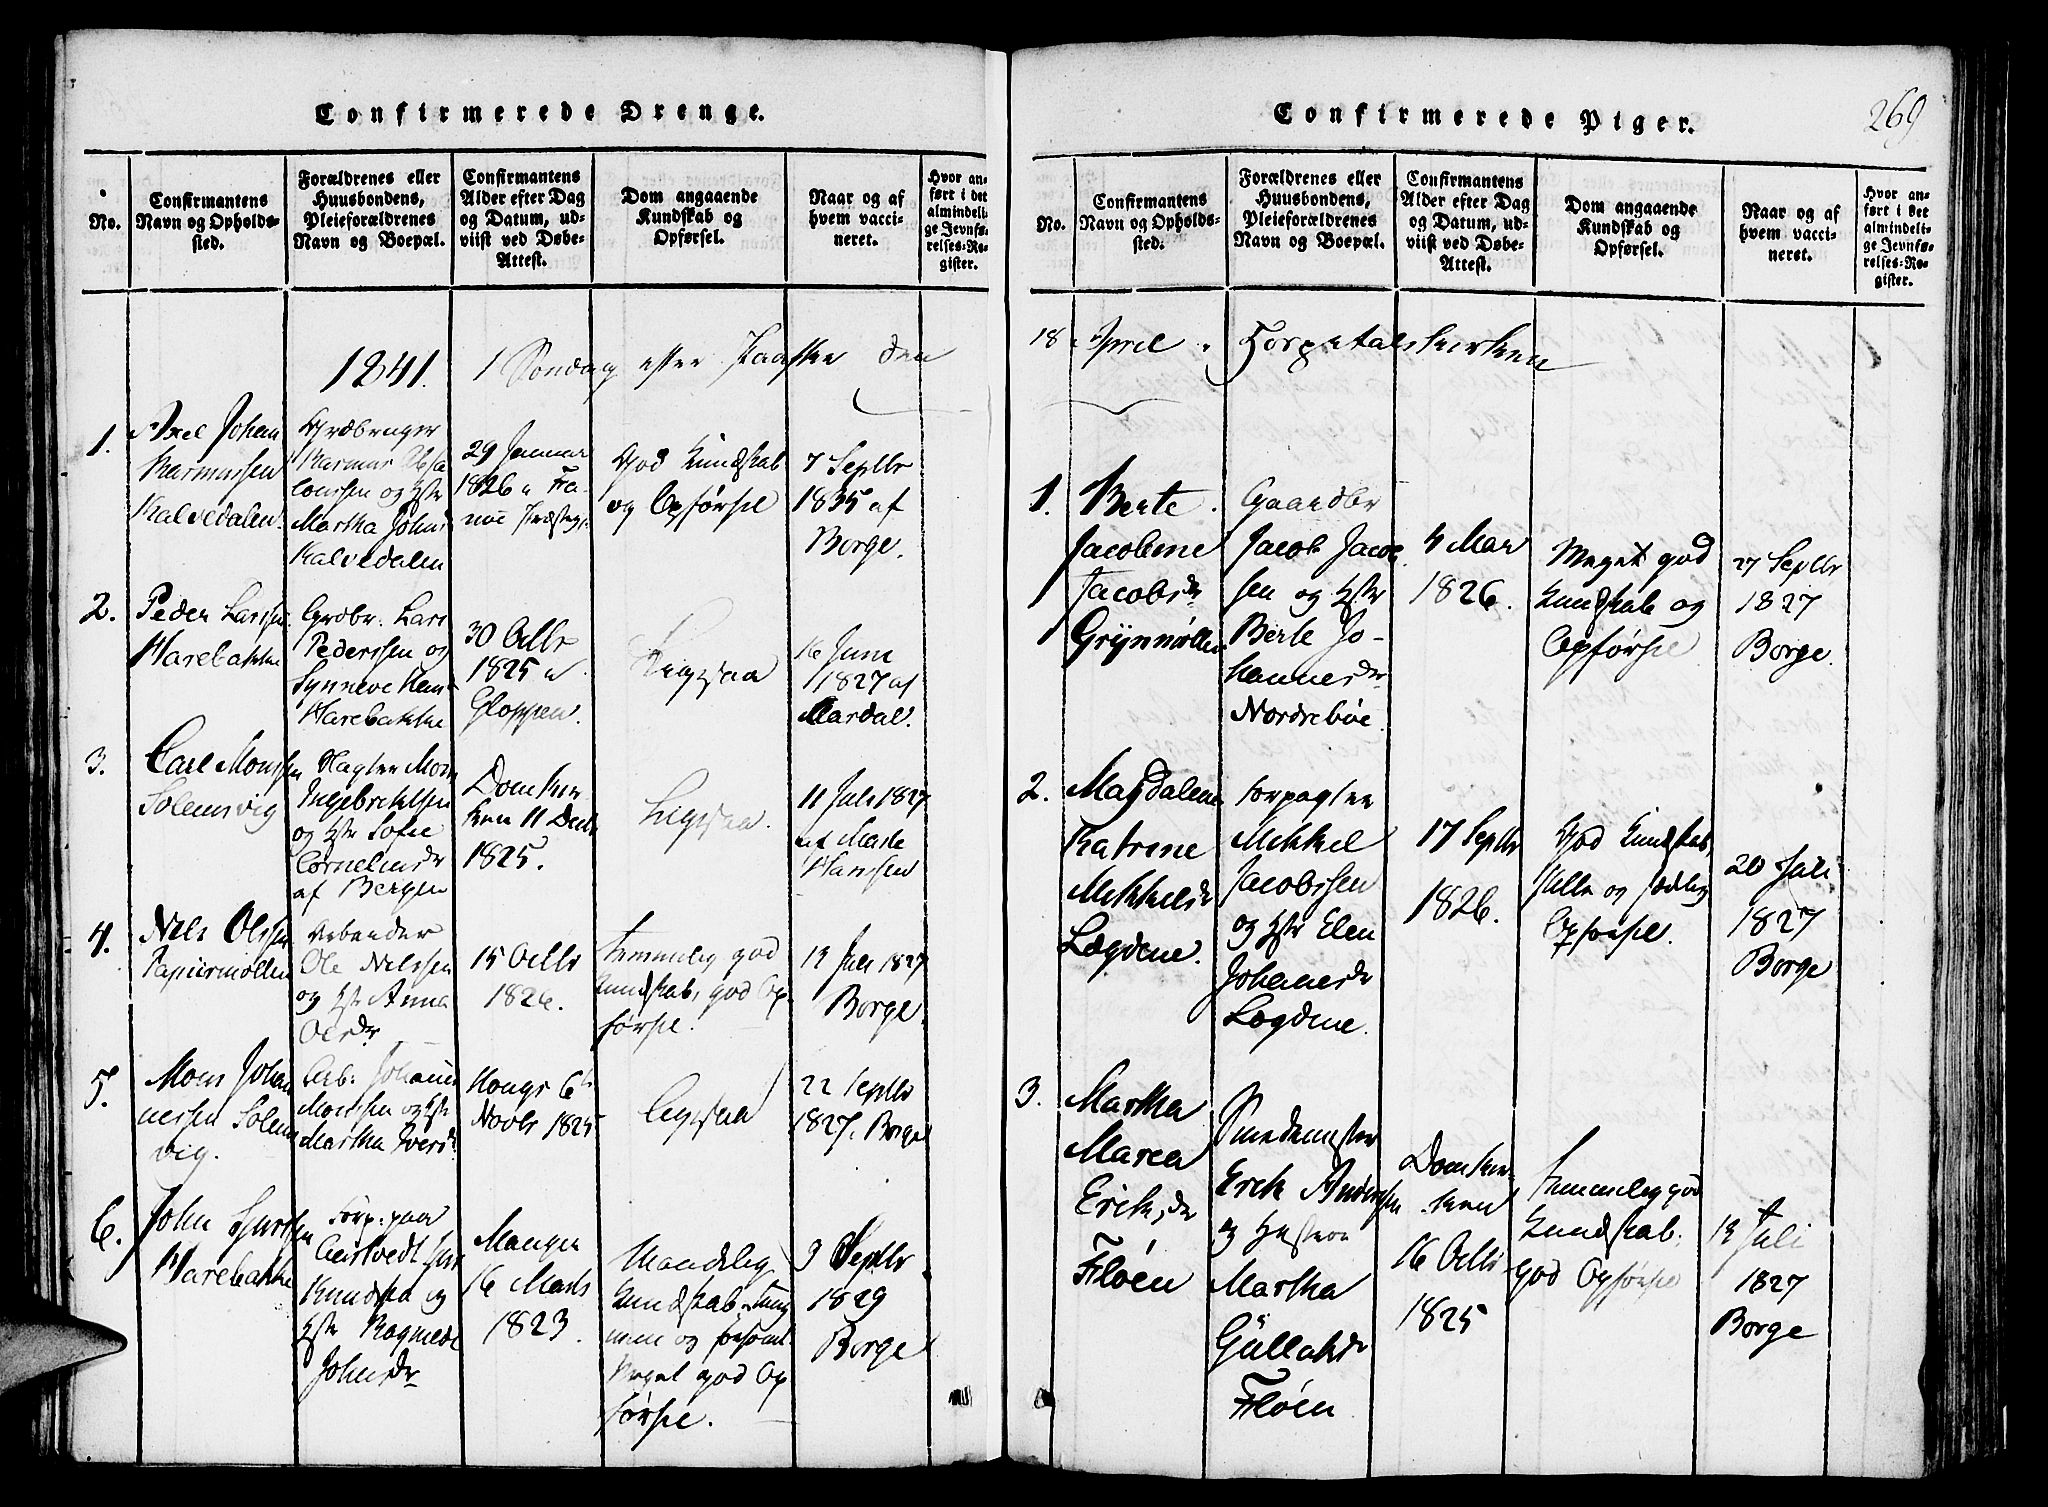 Confirmerede Drenge.
No.
Confirmantens
Navn og Opholds-
sted.
Forældrenes eller
Huusbondens,
Pleieforældrenes
Navn og Boepæl.
Confirmantens
Alder efter Dag
og Datum, ud-
viist ved Døbe-
Attest.
Dom angaaende
Kundskab og
Opførsel.
Naar og af
hvem vacci-
neret.
Hvor an-
ført i det
almindeli-
ge Jevnfø-
relses-Re-
gister.
1841. 1 Søndag efter Paaske den
1.
Axel Johan
Rasmussen
Kalvedalen
Rasmus
og Hstr
Martha Johns
Kalvedalen
29 Januar
1826
God Kundskab
og Opførsel
7 Septbr
1835 af
Borge.
2.
Peder Larssen
Harebakke
Grdbr. Lars
Pederssen og
Synneve Hans
Harebakke
30 Octbr
1825
Gloppen.
Ligesaa
16 Juni
1827 af
Aardal.
3.
Carl Monssen
Solemsvig
Slagter Mons
Ingebrichtsen
og Hstr Sofie
Cornelinsdr
af Bergen
Domkir
ken 11 Decbr
1825.
Ligesaa.
11 Juli 1827
af Marte
Hanssen
4.
Nils Olssen
Papiirmøllen
Arbeider
Ole Nilssen
og Hstr Anna
Olsdr
15 Octbr
1826.
temmelig god
Kundskab, god Op
førsel.
19 Juli 1827
Borge.
5.
Mons Johan
nessen Solems
vig.
Arb: Johannes
Monssen og Hstr
Martha Iversdr
6
Novbr 1825
Ligesaa
22 Septbr
1827. Borge
6.
John Sjurssen
Harebakke
Knudsen og
Hstr Ragnilde
Johnsdr
Manger
16 Marts
1823.
Maadelig
Kundskab,
og
Meget god Op
førsel.
9 Septbr
1829
Borge
Confirmerede Piger.
269
No.
Confirmantens
Navn og Opholds-
sted.
Forældrenes eller
Huusbondens,
Pleieforældrenes
Navn og Boepæl.
Confirmantens
Alder efter Dag
og Datum, ud-
viist ved Døbe-
Attest.
Dom angaaende
Kundskab og
Opførsel.
Naar og af
hvem vacci-
neret.
Hvor an-
ført i det
almindeli-
ge Jevnfø-
relses-Re-
gister.
18 April. Hospitalskirken
1.
Berte
Jacobine
Jacobsdr
Grynmøllen
Gaardbr
Jacob Jacob
sen og Hstr
Berte Jo-
hannesdr
Nordrebøe.
4 Mar
1826.
Meget god
Kundskab og
Opførsel
27 Septbr
1827
Borge.
2.
Magdalene
Katrine
Mikkelsdr
Lægdene.
Forpagter
Mikkel
Jacobssen
og Hstr Elen
Johanesdr
Lægdene.
17 Septbr
1826.
God Kundskab,
stille og sædelig
Opførsel.
20 Juli
1827
Borge
3.
Martha
Maria
Eriksdr
Fløen
Smedemester
Erik Anderssen
og Hustroe
Martha
Gullaksdr
Fløen
Domkir
ken
16 Octbr
1825
temmelig god
Kundskab.
god Opførsel
19 Juli
1827
Borge